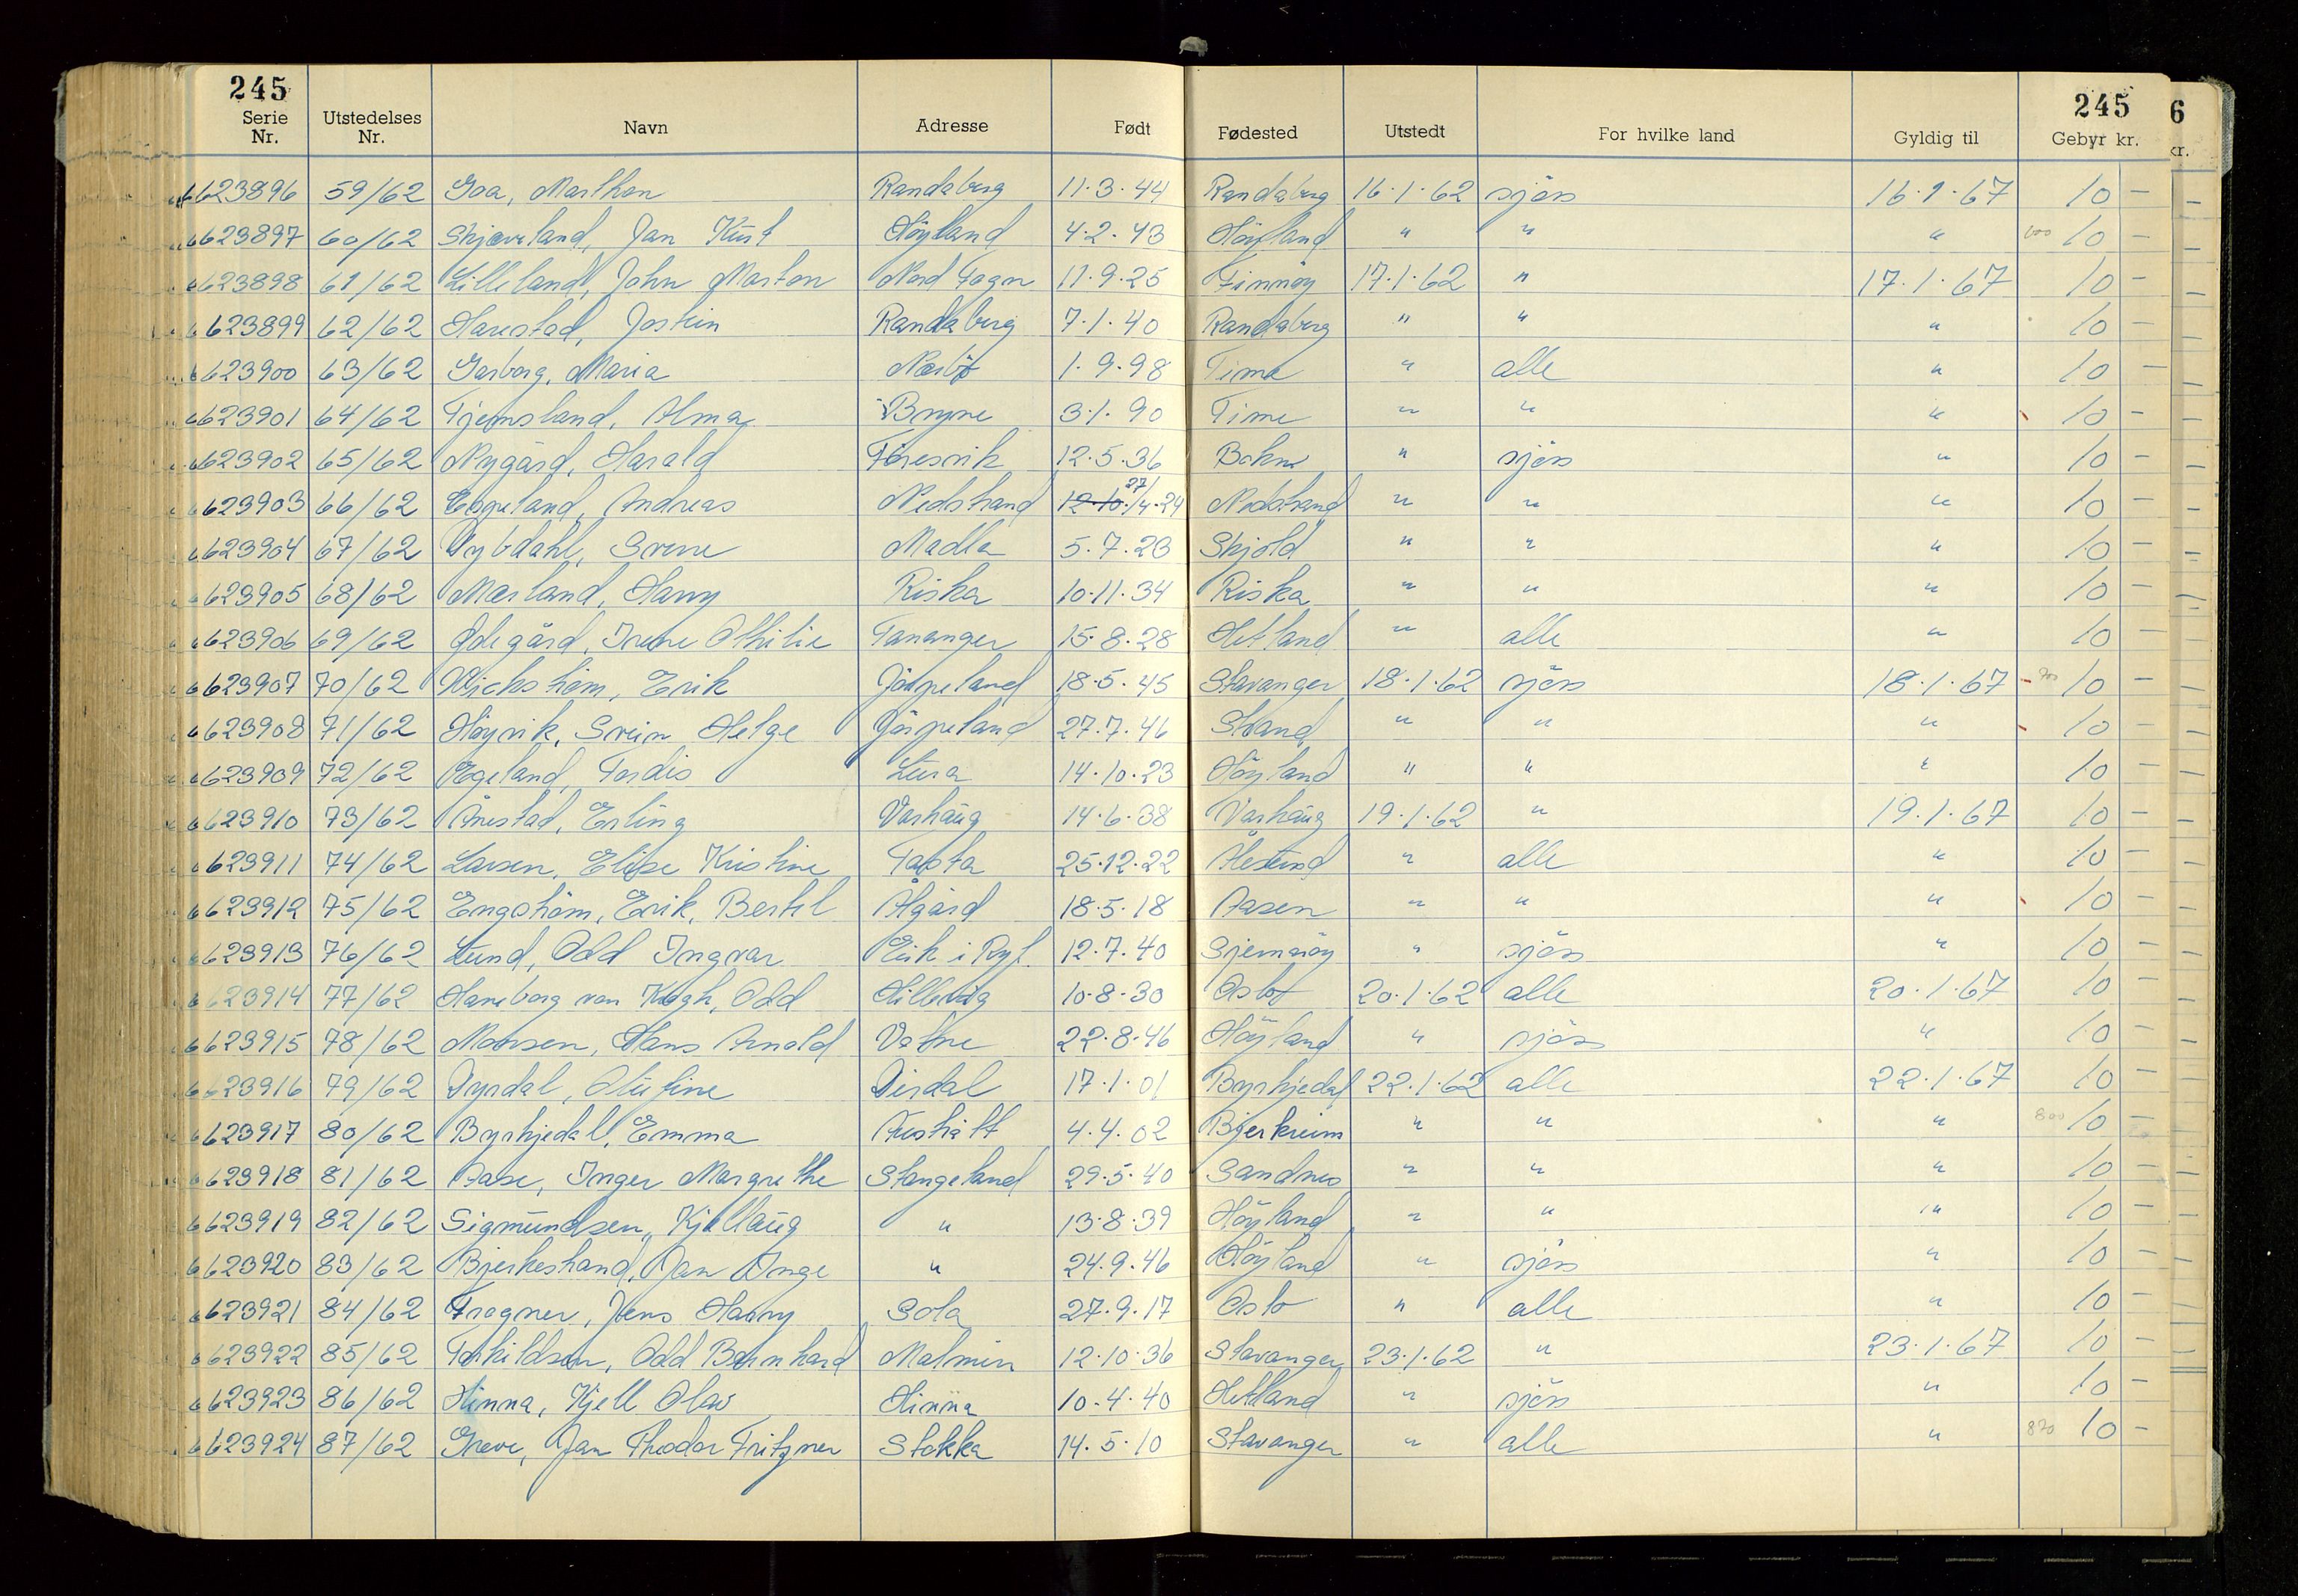 245 245 6
Serie Nr. Utstedelses Nr. Navn Adresse Født Fødested Utstedt For hvilke land Gyldig til Gebyr kr. kr.
6623896 59/62 Goa, Marthon Randaberg 11.3.44 Randaberg 16.1.62 sjøss 16.1.67 10 —
6623897 60/62 Skjæveland, Jan Kurt Höyland 4.2.43 Höyland " " " 10 —
6623898 61/62 Lilleland, John Marton Nord Fogn 11.9.25 Finnöy 17.1.62 " 17.1.67 10 —
6623899 62/62 Harestad, Jostein Randaberg 7.1.40 Randaberg " " " 10 —
6623900 63/62 Garborg, Maria Nærbø 1.9.98 Time " alle " 10 —
6623901 64/62 Tjemsland, Alma Bryne 3.1.90 Time " " " 10 —
6623902 65/62 Nygård, Harald Föresvik 12.5.36 Bokn " sjöss " 10 —
6623903 66/62 Espeland, Andreas Nedstrand 12.10. 27/4.24 Nedstrand " " " 10 —
6623904 67/62 Dybdahl, Svene Madla 5.7.23 Skjold " " " 10 —
6623905 68/62 Mæland, Harry Riska 10.11.34 Riska " " " 10 —
6623906 69/62 Ødegård, Irene Othilie Tananger 15.8.28 Hetland " alle " 10 —
6623907 70/62 Wickström, Erik Jörpeland 18.5.45 Stavanger 18.1.62 sjöss 18.1.67 10 —
6623908 71/62 Höyvik, Svein Helge Jörpeland 27.7.46 Strand " " " 10 —
6623909 72/62 Egeland, Tordis Lura 14.10.23 Höyland " " " 10 —
6623910 73/62 Årrestad, Erling Varhaug 14.6.38 Varhaug 19.1.62 " 19.1.67 10 —
6623911 74/62 Larsen, Elise Kristine Tasta 25.12.22 Ålesund " alle " 10 —
6623912 75/62 Engström, Erik, Bertil Ålgård 18.5.18 Aasen " " " 10 —
6623913 76/62 Lund, Odd Ingvar Eik i Ryf. 12.7.40 Sjernaröy " sjöss " 10 —
6623914 77/62 Hareborg von Krogh, Odd Hillevåg 10.8.30 Oslo 20.1.62 alle 20.1.67 10 —
6623915 78/62 Monsen, Hans Arnold Vatne 22.8.46 Höyland " sjöss " 10 —
6623916 79/62 Dyrdal, Olufine Dirdal 17.1.01 Byrkjedal 22.1.62 alle 22.1.67 10 —
6623917 80/62 Byrkjedal, Emma Austrått 4.4.02 Bjerkreim " " " 800 10 —
6623918 81/62 Aase, Inger Margrethe Stangeland 29.5.40 Sandnes " " " 10 —
6623919 82/62 Sigmundsen, Kjellaug " 13.8.39 Höyland " " " 10 —
6623920 83/62 Bjerkestrand, Jan Inge " 24.9.46 Höyland " sjöss " 10 —
6623921 84/62 Frogner, Jens Harry Sola 27.9.17 Oslo " alle " 10 —
6623922 85/62 Torkildsen, Odd Bernhard Malmin 12.10.36 Stavanger 23.1.62 " 23.1.67 10 —
6623923 86/62 Hinna, Kjell Olav Hinna 10.4.40 Hetland " sjöss " 10 —
6623924 87/62 Greve, Jan Theodor Fritzner Stokka 14.5.10 Stavanger " alle " 10 —